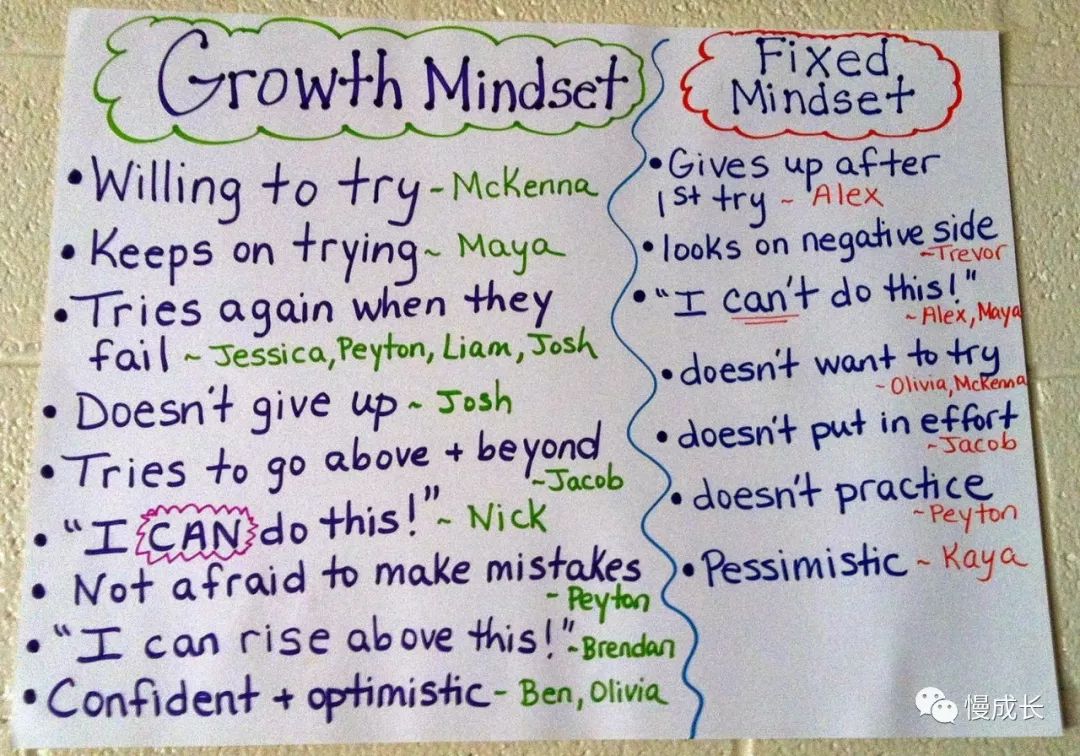 Growth Mindset
• Willing to try - McKenna
• Keeps on trying ~ Maya
• Tries again when they
fail ~ Jessica, Peyton, Liam, Josh
• Doesn't give up ~ Josh
• Tries to go above + beyond
~Jacob
• "I CAN do this!" ~ Nick
• Not afraid to make mistakes
- Peyton
• "I can rise above this!" ~Brendan
• Confident + optimistic - Ben, Olivia
Fixed
Mindset
• Gives up after
1st try ~ Alex
• looks on negative side
~Trevor
• "I can't do this!"
~Alex, Maya
• doesn't want to try
~Olivia, McKenna
• doesn't put in effort
~Jacob
• doesn't practice
~Peyton
• Pessimistic ~ Kaya
慢成长